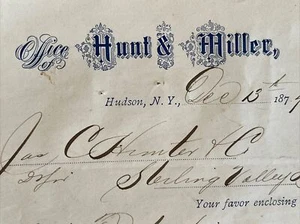 Office of Hunt & Miller,
Hudson, N.Y., Dec 13th 187
Jas C Hunter & C
Sterling Valley
Your favor enclosing